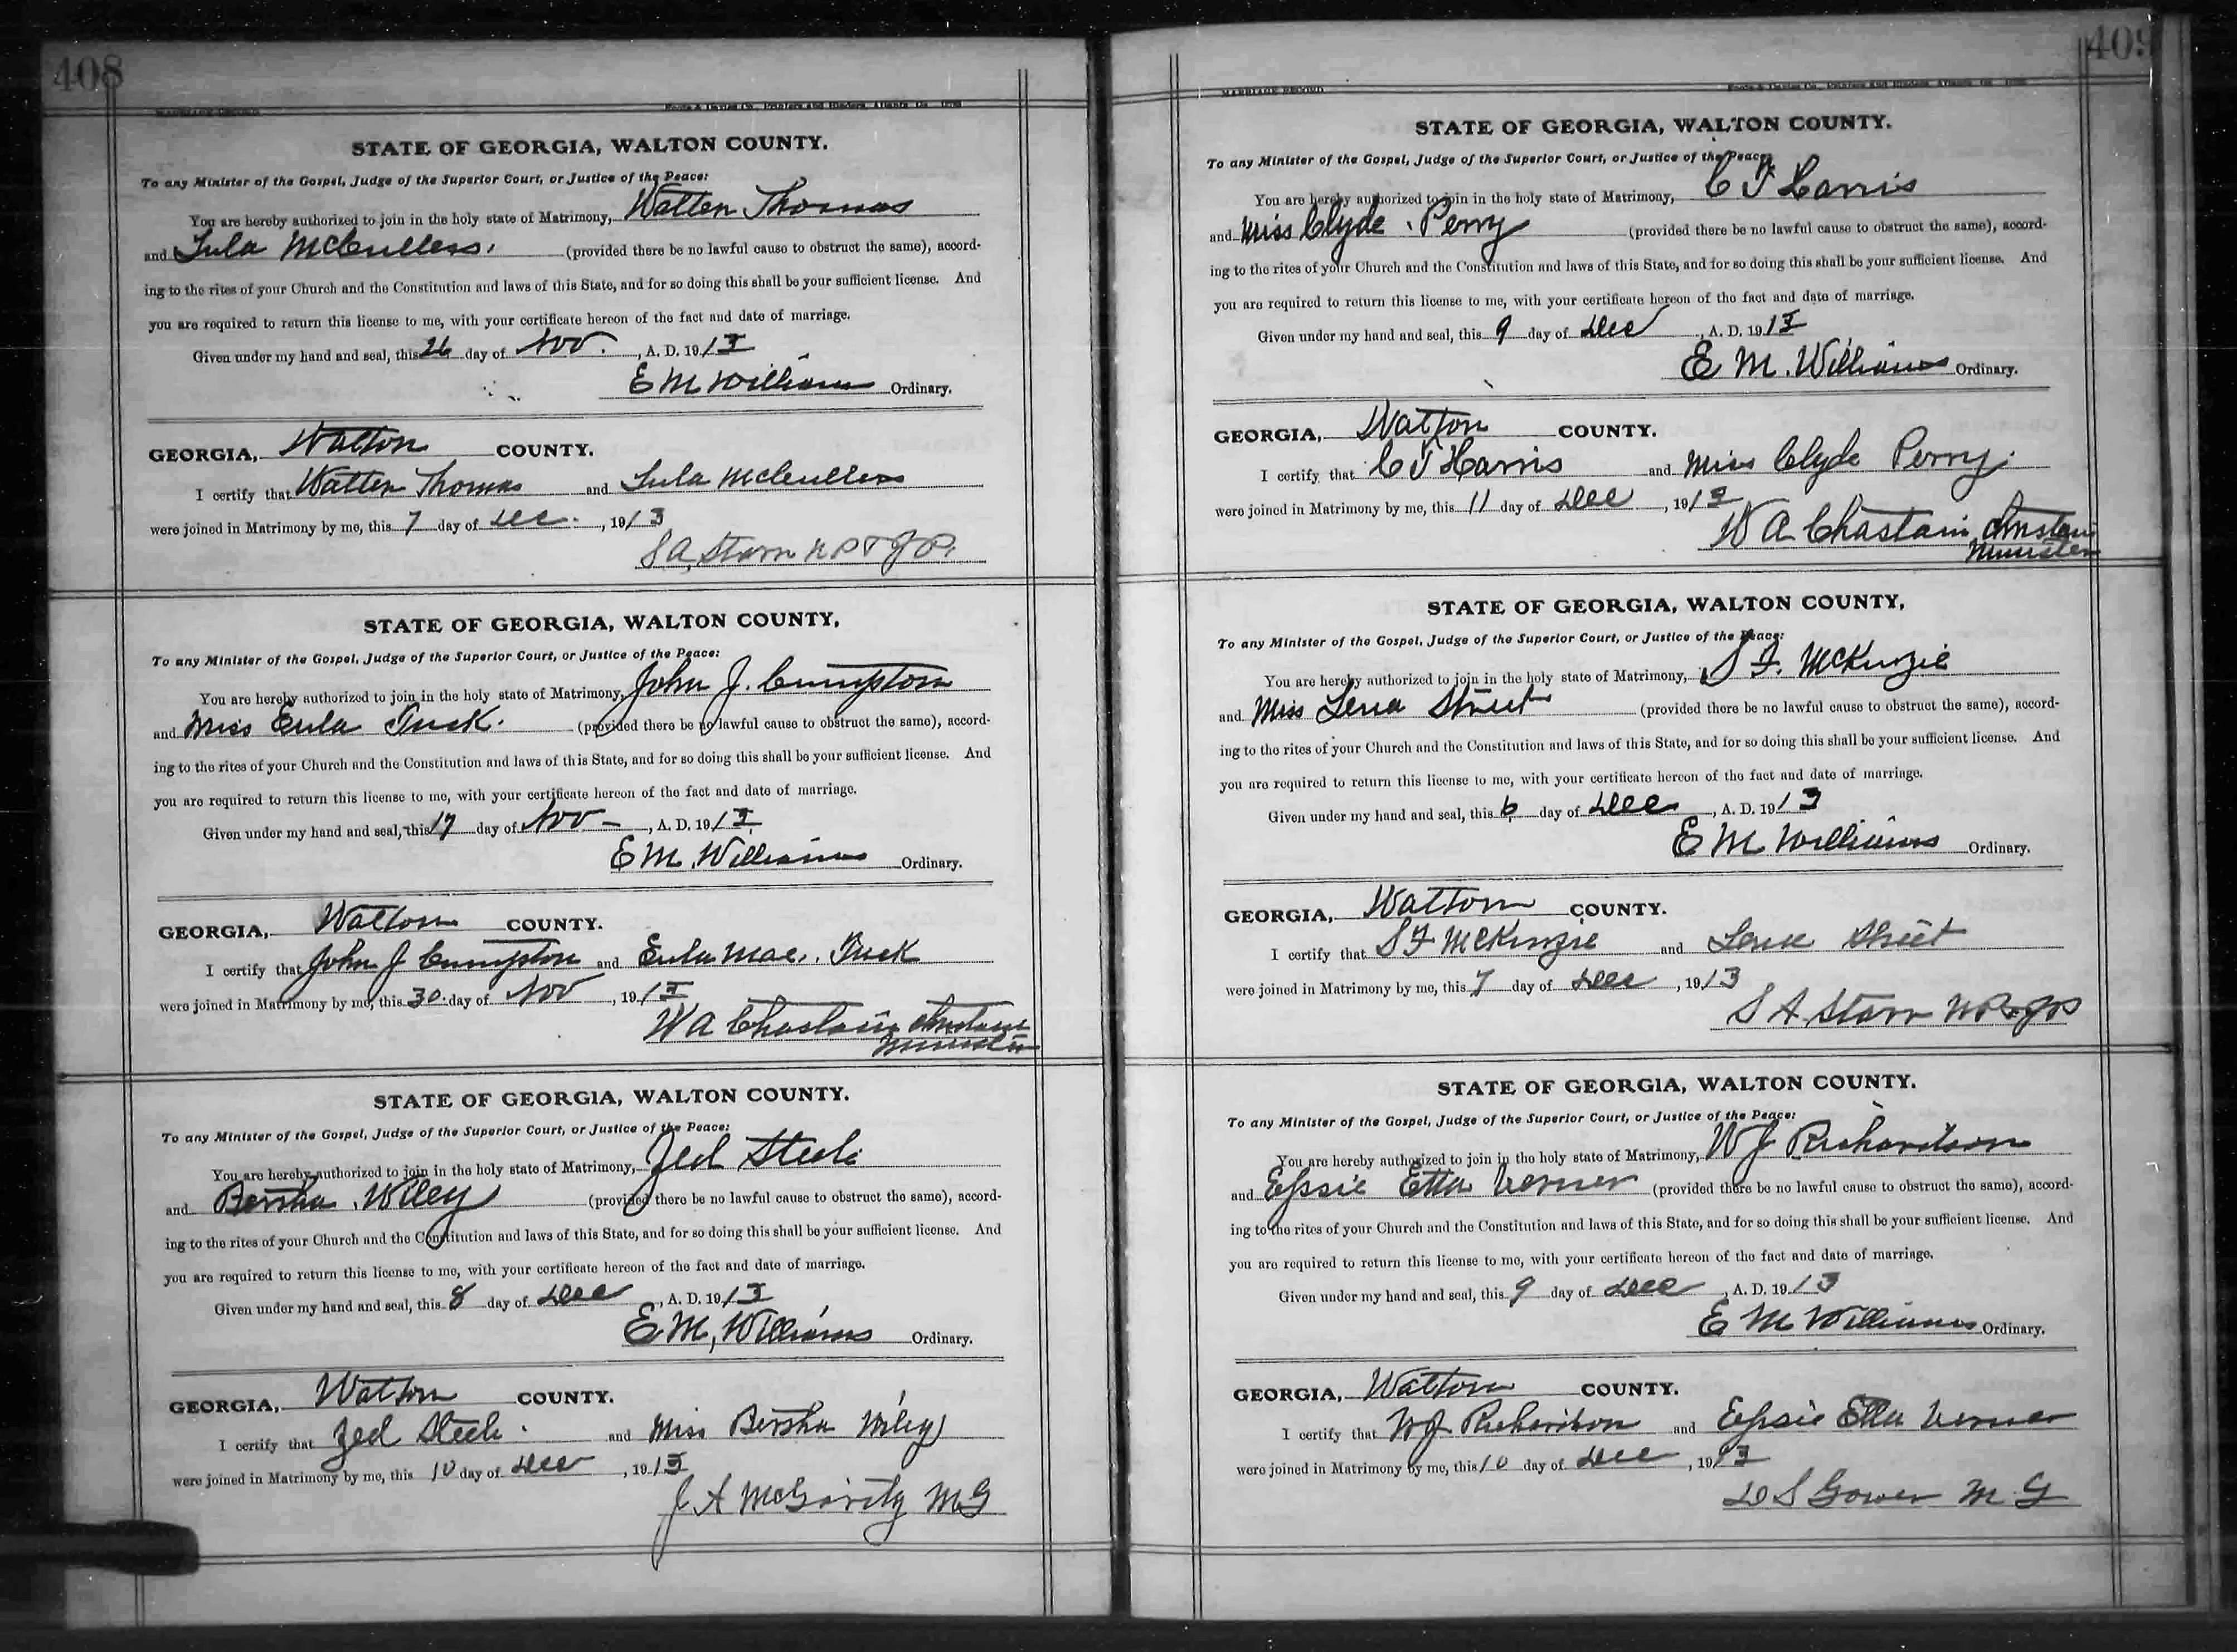 408
MARRIAGE RECORD
STATE OF GEORGIA, WALTON COUNTY.
To any Minister of the Gospel, Judge of the Superior Court, or Justice of the Peace:
You are hereby authorized to join in the holy state of Matrimony, Walter Thomas
and Lula McCullers. (provided there be no lawful cause to obstruct the same), accord-
ing to the rites of your Church and the Constitution and laws of this State, and for so doing this shall be your sufficient license. And
you are required to return this license to me, with your certificate hereon of the fact and date of marriage.
Given under my hand and seal, this 26 day of Nov. , A. D. 1913
E M Williams Ordinary.
GEORGIA, Walton COUNTY.
I certify that Walter Thomas and Lula McCullers
were joined in Matrimony by me, this 7 day of Dec. , 1913
S A, Starr N P & J P.
STATE OF GEORGIA, WALTON COUNTY,
To any Minister of the Gospel, Judge of the Superior Court, or Justice of the Peace:
You are hereby authorized to join in the holy state of Matrimony, John J. Cumpton
and Miss Eula Tuck. (provided there be no lawful cause to obstruct the same), accord-
ing to the rites of your Church and the Constitution and laws of this State, and for so doing this shall be your sufficient license. And
you are required to return this license to me, with your certificate hereon of the fact and date of marriage.
Given under my hand and seal, this 17 day of Nov - , A. D. 1913
E M. Williams Ordinary.
GEORGIA, Walton COUNTY.
I certify that John J Cumpton and Eula Mae. Tuck
were joined in Matrimony by me, this 30. day of Nov , 1913
W A Chastain Christian
Minister
STATE OF GEORGIA, WALTON COUNTY.
To any Minister of the Gospel, Judge of the Superior Court, or Justice of the Peace:
You are hereby authorized to join in the holy state of Matrimony, Zed Steele
and Bersha Wiley (provided there be no lawful cause to obstruct the same), accord-
ing to the rites of your Church and the Constitution and laws of this State, and for so doing this shall be your sufficient license. And
you are required to return this license to me, with your certificate hereon of the fact and date of marriage.
Given under my hand and seal, this 8 day of Dec , A. D. 1913
E M, Williams Ordinary.
GEORGIA, Walton COUNTY.
I certify that Zed Steele. and Miss Bersha Wiley
were joined in Matrimony by me, this 10 day of Dec , 1913
J A McGarity MG
409
MARRIAGE RECORD
STATE OF GEORGIA, WALTON COUNTY.
To any Minister of the Gospel, Judge of the Superior Court, or Justice of the Peace:
You are hereby authorized to join in the holy state of Matrimony, C T Harris
and Miss Clyde Perry (provided there be no lawful cause to obstruct the same), accord-
ing to the rites of your Church and the Constitution and laws of this State, and for so doing this shall be your sufficient license. And
you are required to return this license to me, with your certificate hereon of the fact and date of marriage.
Given under my hand and seal, this 9 day of Dec , A. D. 1913
E M. Williams Ordinary.
GEORGIA, Walton COUNTY.
I certify that C T Harris and Miss Clyde Perry.
were joined in Matrimony by me, this 11 day of Dec , 1913
W A Chastain Christian
Minister
STATE OF GEORGIA, WALTON COUNTY,
To any Minister of the Gospel, Judge of the Superior Court, or Justice of the Peace:
You are hereby authorized to join in the holy state of Matrimony, S F. McKenzie
and Miss Lena Street (provided there be no lawful cause to obstruct the same), accord-
ing to the rites of your Church and the Constitution and laws of this State, and for so doing this shall be your sufficient license. And
you are required to return this license to me, with your certificate hereon of the fact and date of marriage.
Given under my hand and seal, this 6 day of Dec , A. D. 1913
E M Williams Ordinary.
GEORGIA, Walton COUNTY.
I certify that S F McKenzie and Lena Street
were joined in Matrimony by me, this 7 day of Dec , 1913
S A Starr N P & J P
STATE OF GEORGIA, WALTON COUNTY.
To any Minister of the Gospel, Judge of the Superior Court, or Justice of the Peace:
You are hereby authorized to join in the holy state of Matrimony, W J Richardson
and Essie Etta Verner (provided there be no lawful cause to obstruct the same), accord-
ing to the rites of your Church and the Constitution and laws of this State, and for so doing this shall be your sufficient license. And
you are required to return this license to me, with your certificate hereon of the fact and date of marriage.
Given under my hand and seal, this 9 day of Dec , A. D. 1913
E M Williams Ordinary.
GEORGIA, Walton COUNTY.
I certify that W J Richardson and Essie Etta Verner
were joined in Matrimony by me, this 10 day of Dec , 1913
D S Gower M. G